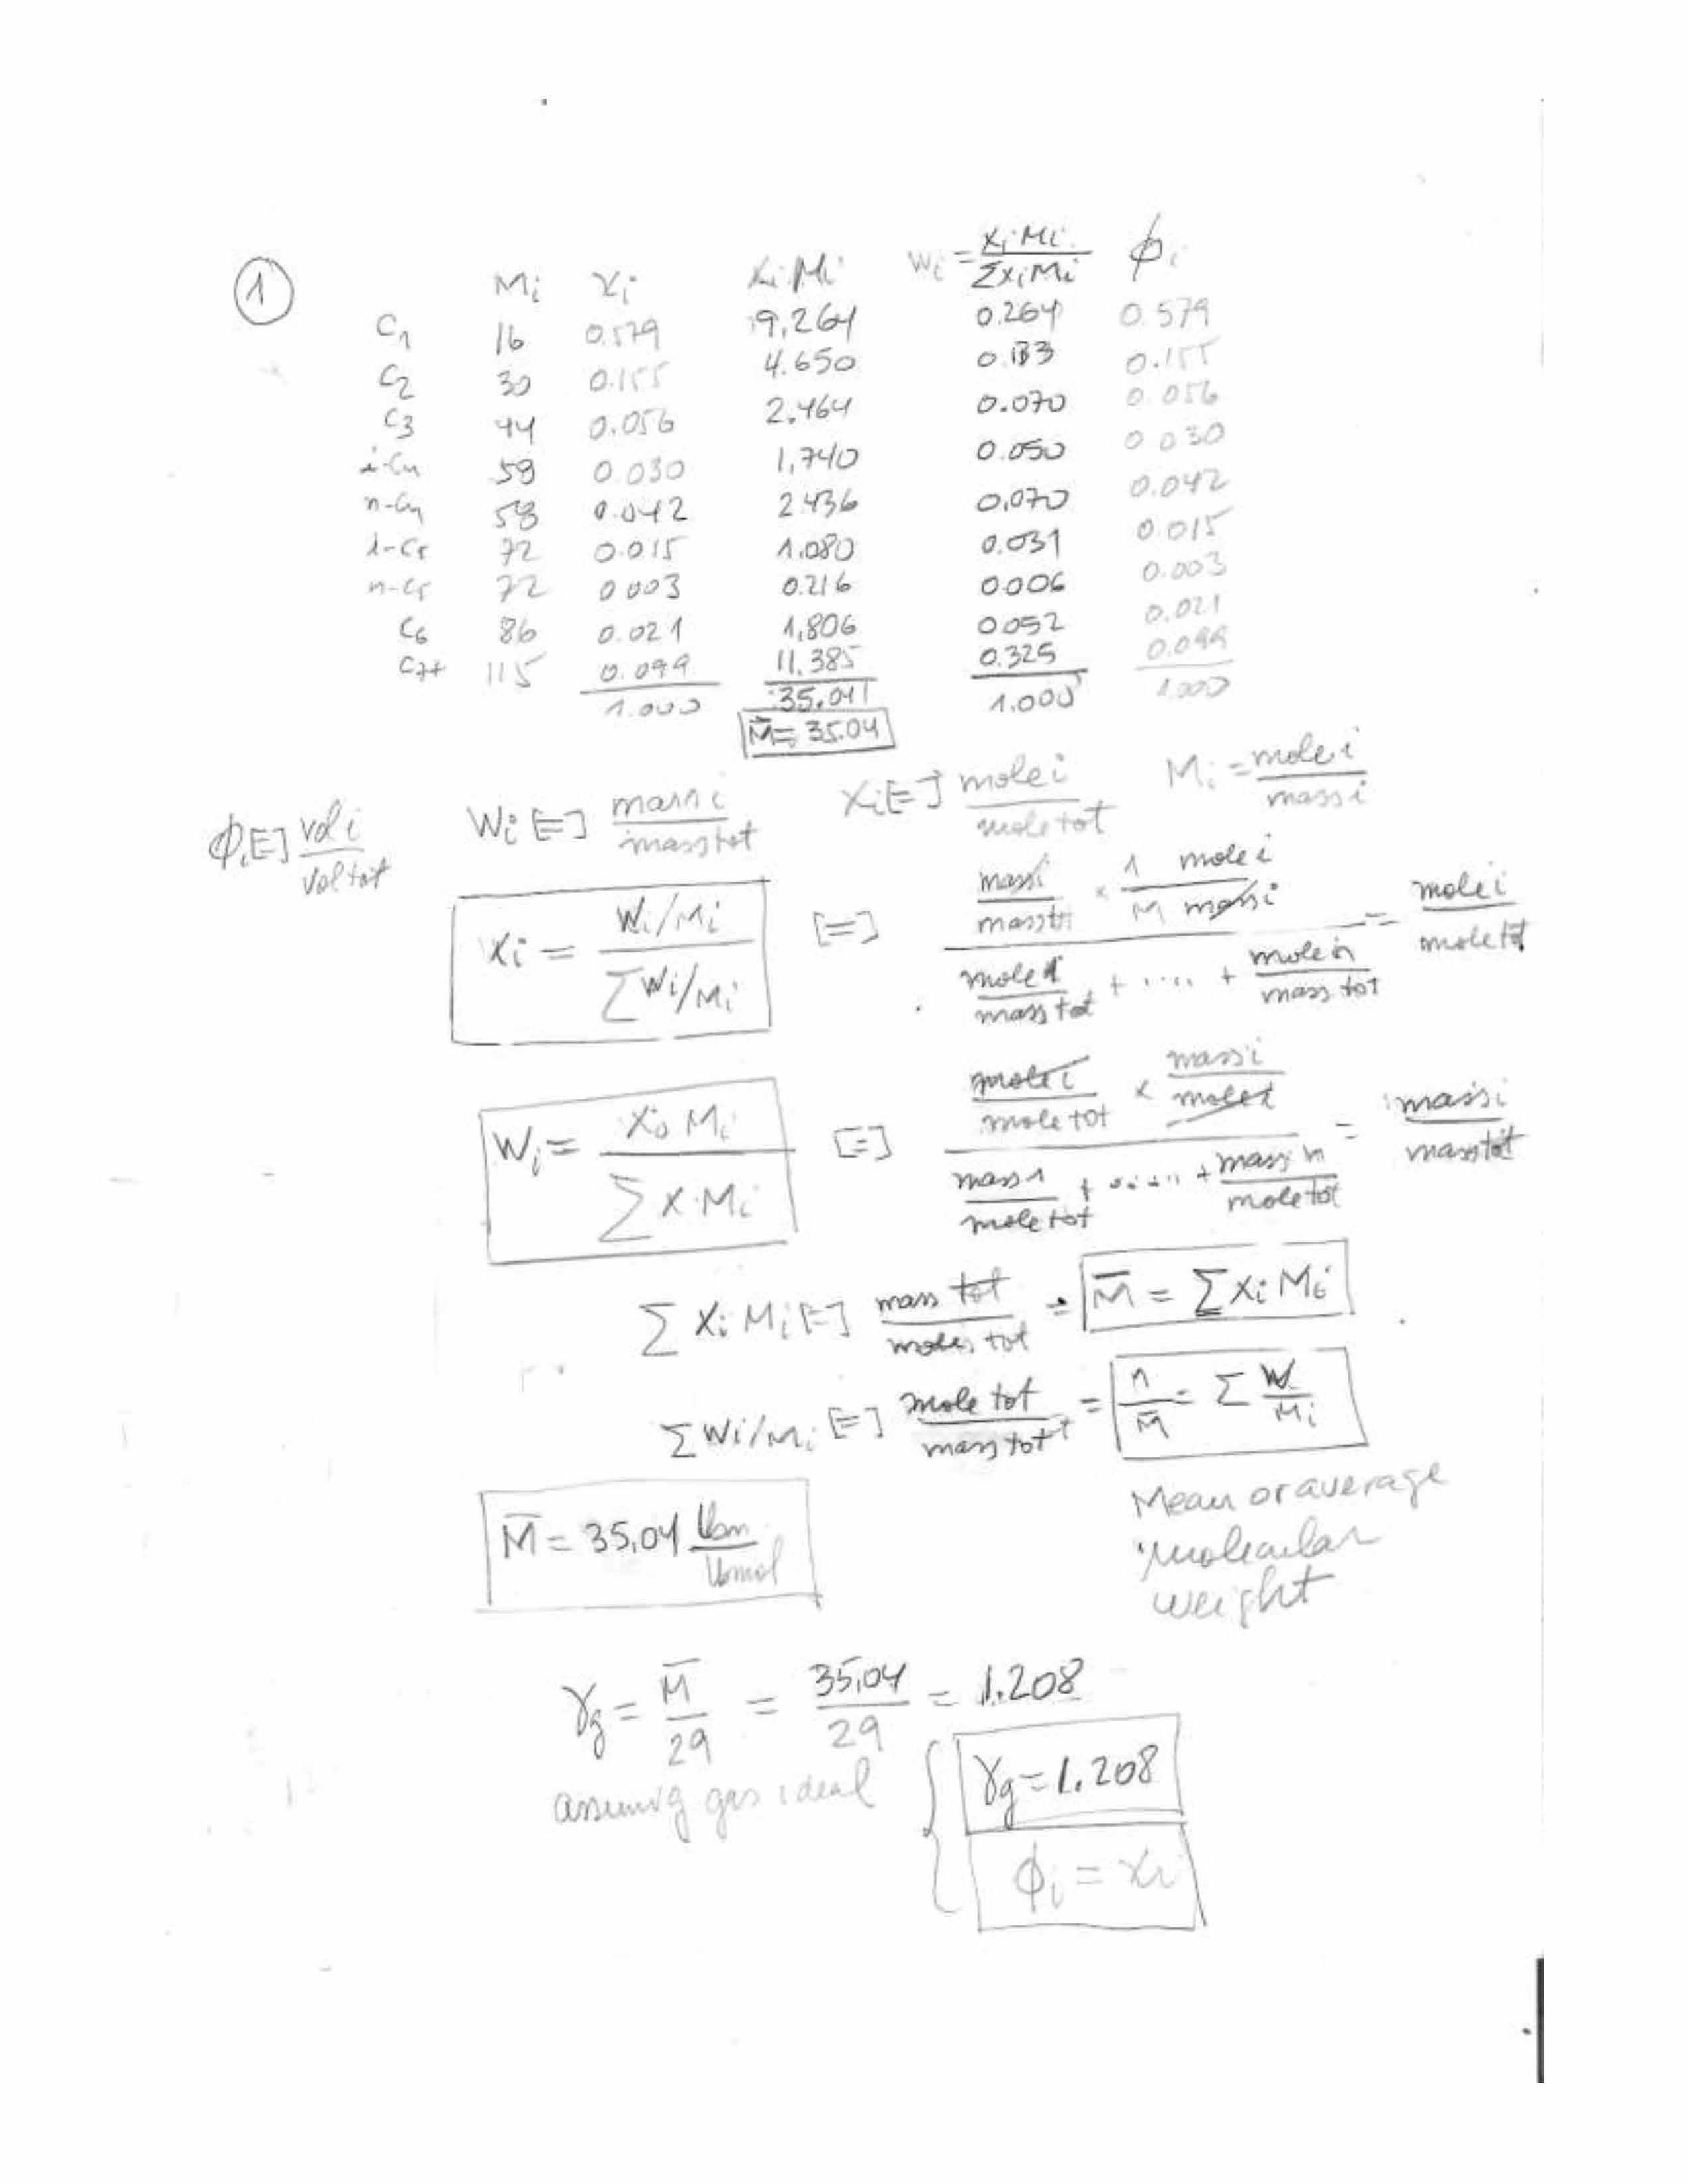 ① Mi xi xi·Mi wi = xi·Mi / Σxi Mi ϕi
C1 16 0.579 9,264 0.264 0.579
C2 30 0.155 4.650 0.133 0.155
C3 44 0.056 2.464 0.070 0.056
i-C4 58 0.030 1,740 0.050 0.030
n-C4 58 0.042 2.436 0,070 0.042
i-C5 72 0.015 1.080 0.031 0.015
n-C5 72 0.003 0.216 0.006 0.003
C6 86 0.021 1,806 0.052 0.021
C7+ 115 0.099 11.385 0.325 0.099
1.000 35.041 1.000 1.000
M̄ = 35.04
ϕi [=] vol i / vol tot Wi [=] mass i / mass tot Xi [=] mole i / mole tot Mi = mole i / mass i
xi = Wi/Mi / ΣWi/Mi [=] mass i / mass tot × 1 mole i / M mass i / mole 1 / mass tot + .... + mole n / mass tot = mole i / mole tot
Wi = Xi Mi / Σ X·Mi [=] mole i / mole tot × mass i / mole i / mass 1 / mole tot + ..... + mass n / mole tot = mass i / mass tot
Σ Xi Mi [=] mass tot / moles tot = M̄ = Σ Xi Mi
Σ Wi/Mi [=] mole tot / mass tot = 1 / M̄ = Σ Wi / Mi
M̄ = 35,04 lbm / lbmol
Mean or average
molecular
weight
γg = M̄ / 29 = 35,04 / 29 = 1.208
assuming gas ideal
γg = 1.208
ϕi = xi